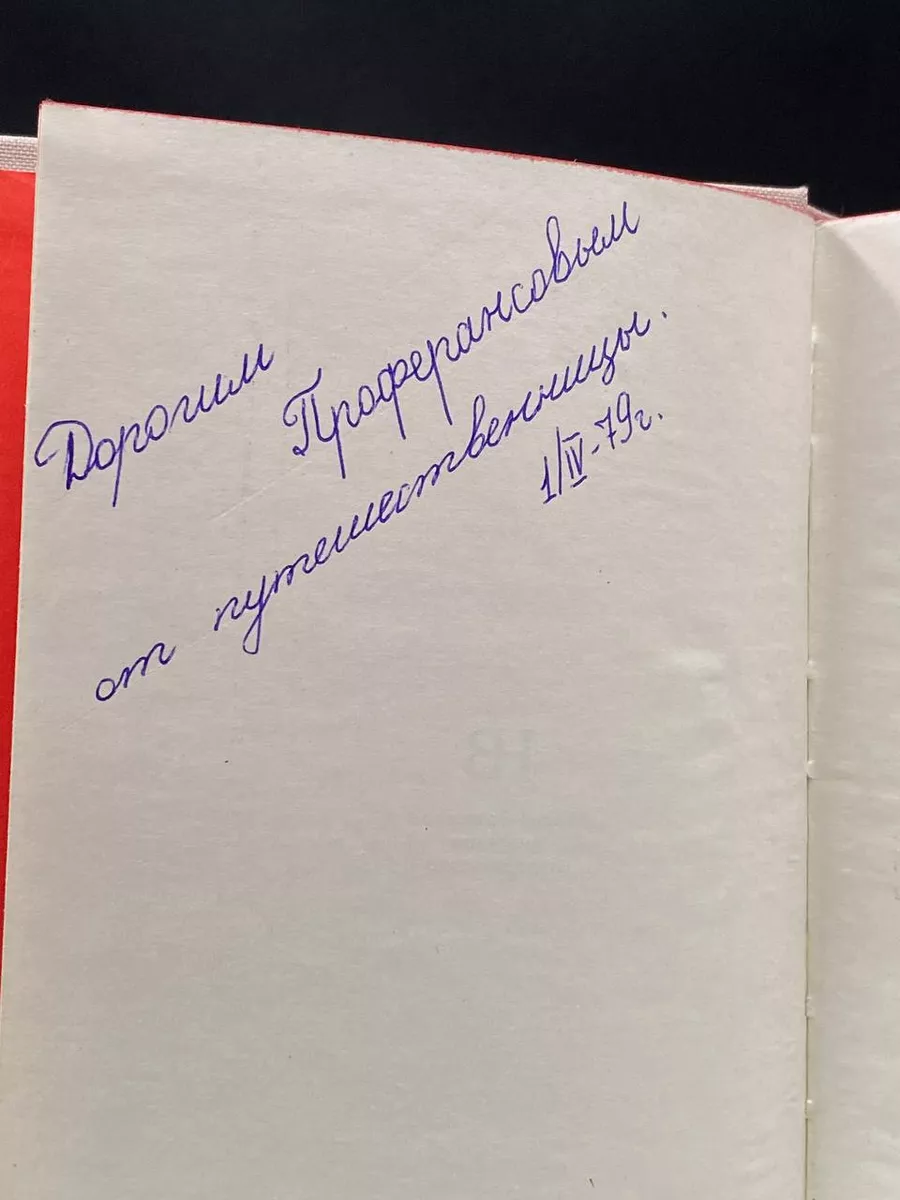 Дорогим Проферансовым
от путешественницы.
1/IV-79г.